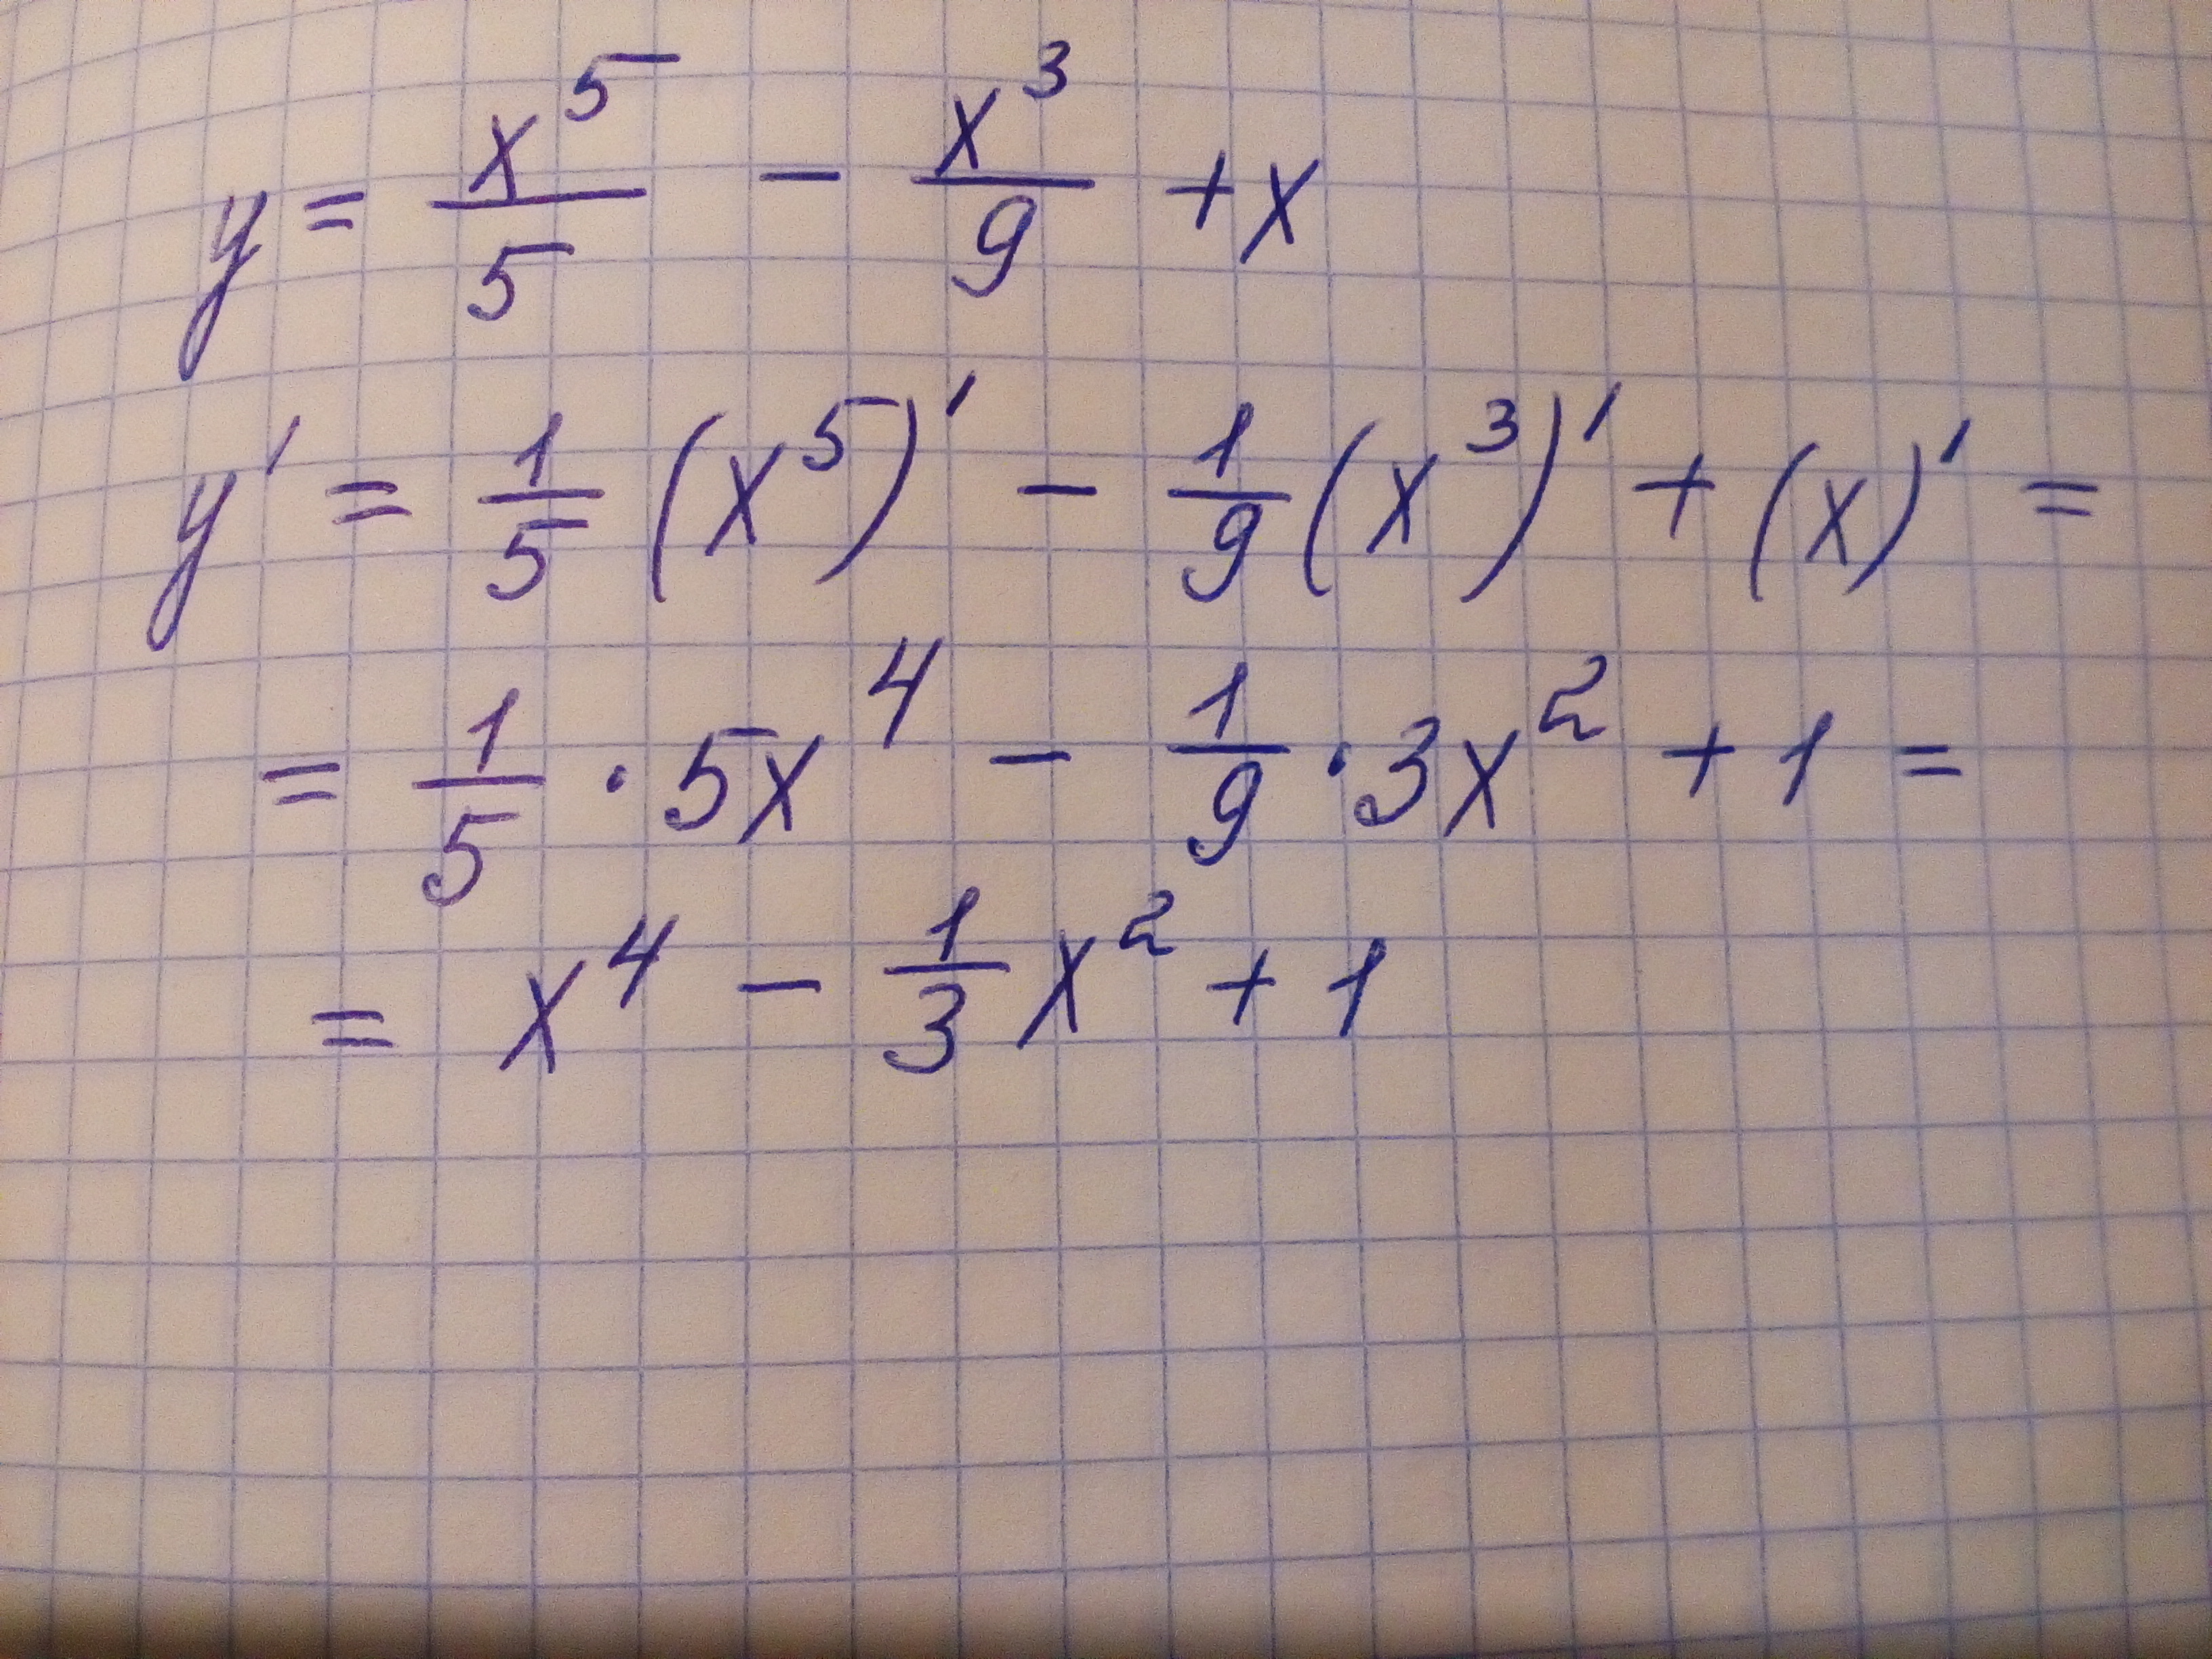 y = x⁵/5 - x³/9 + x
y' = 1/5 (x⁵)' - 1/9 (x³)' + (x)' =
= 1/5 · 5x⁴ - 1/9 · 3x² + 1 =
= x⁴ - 1/3 x² + 1